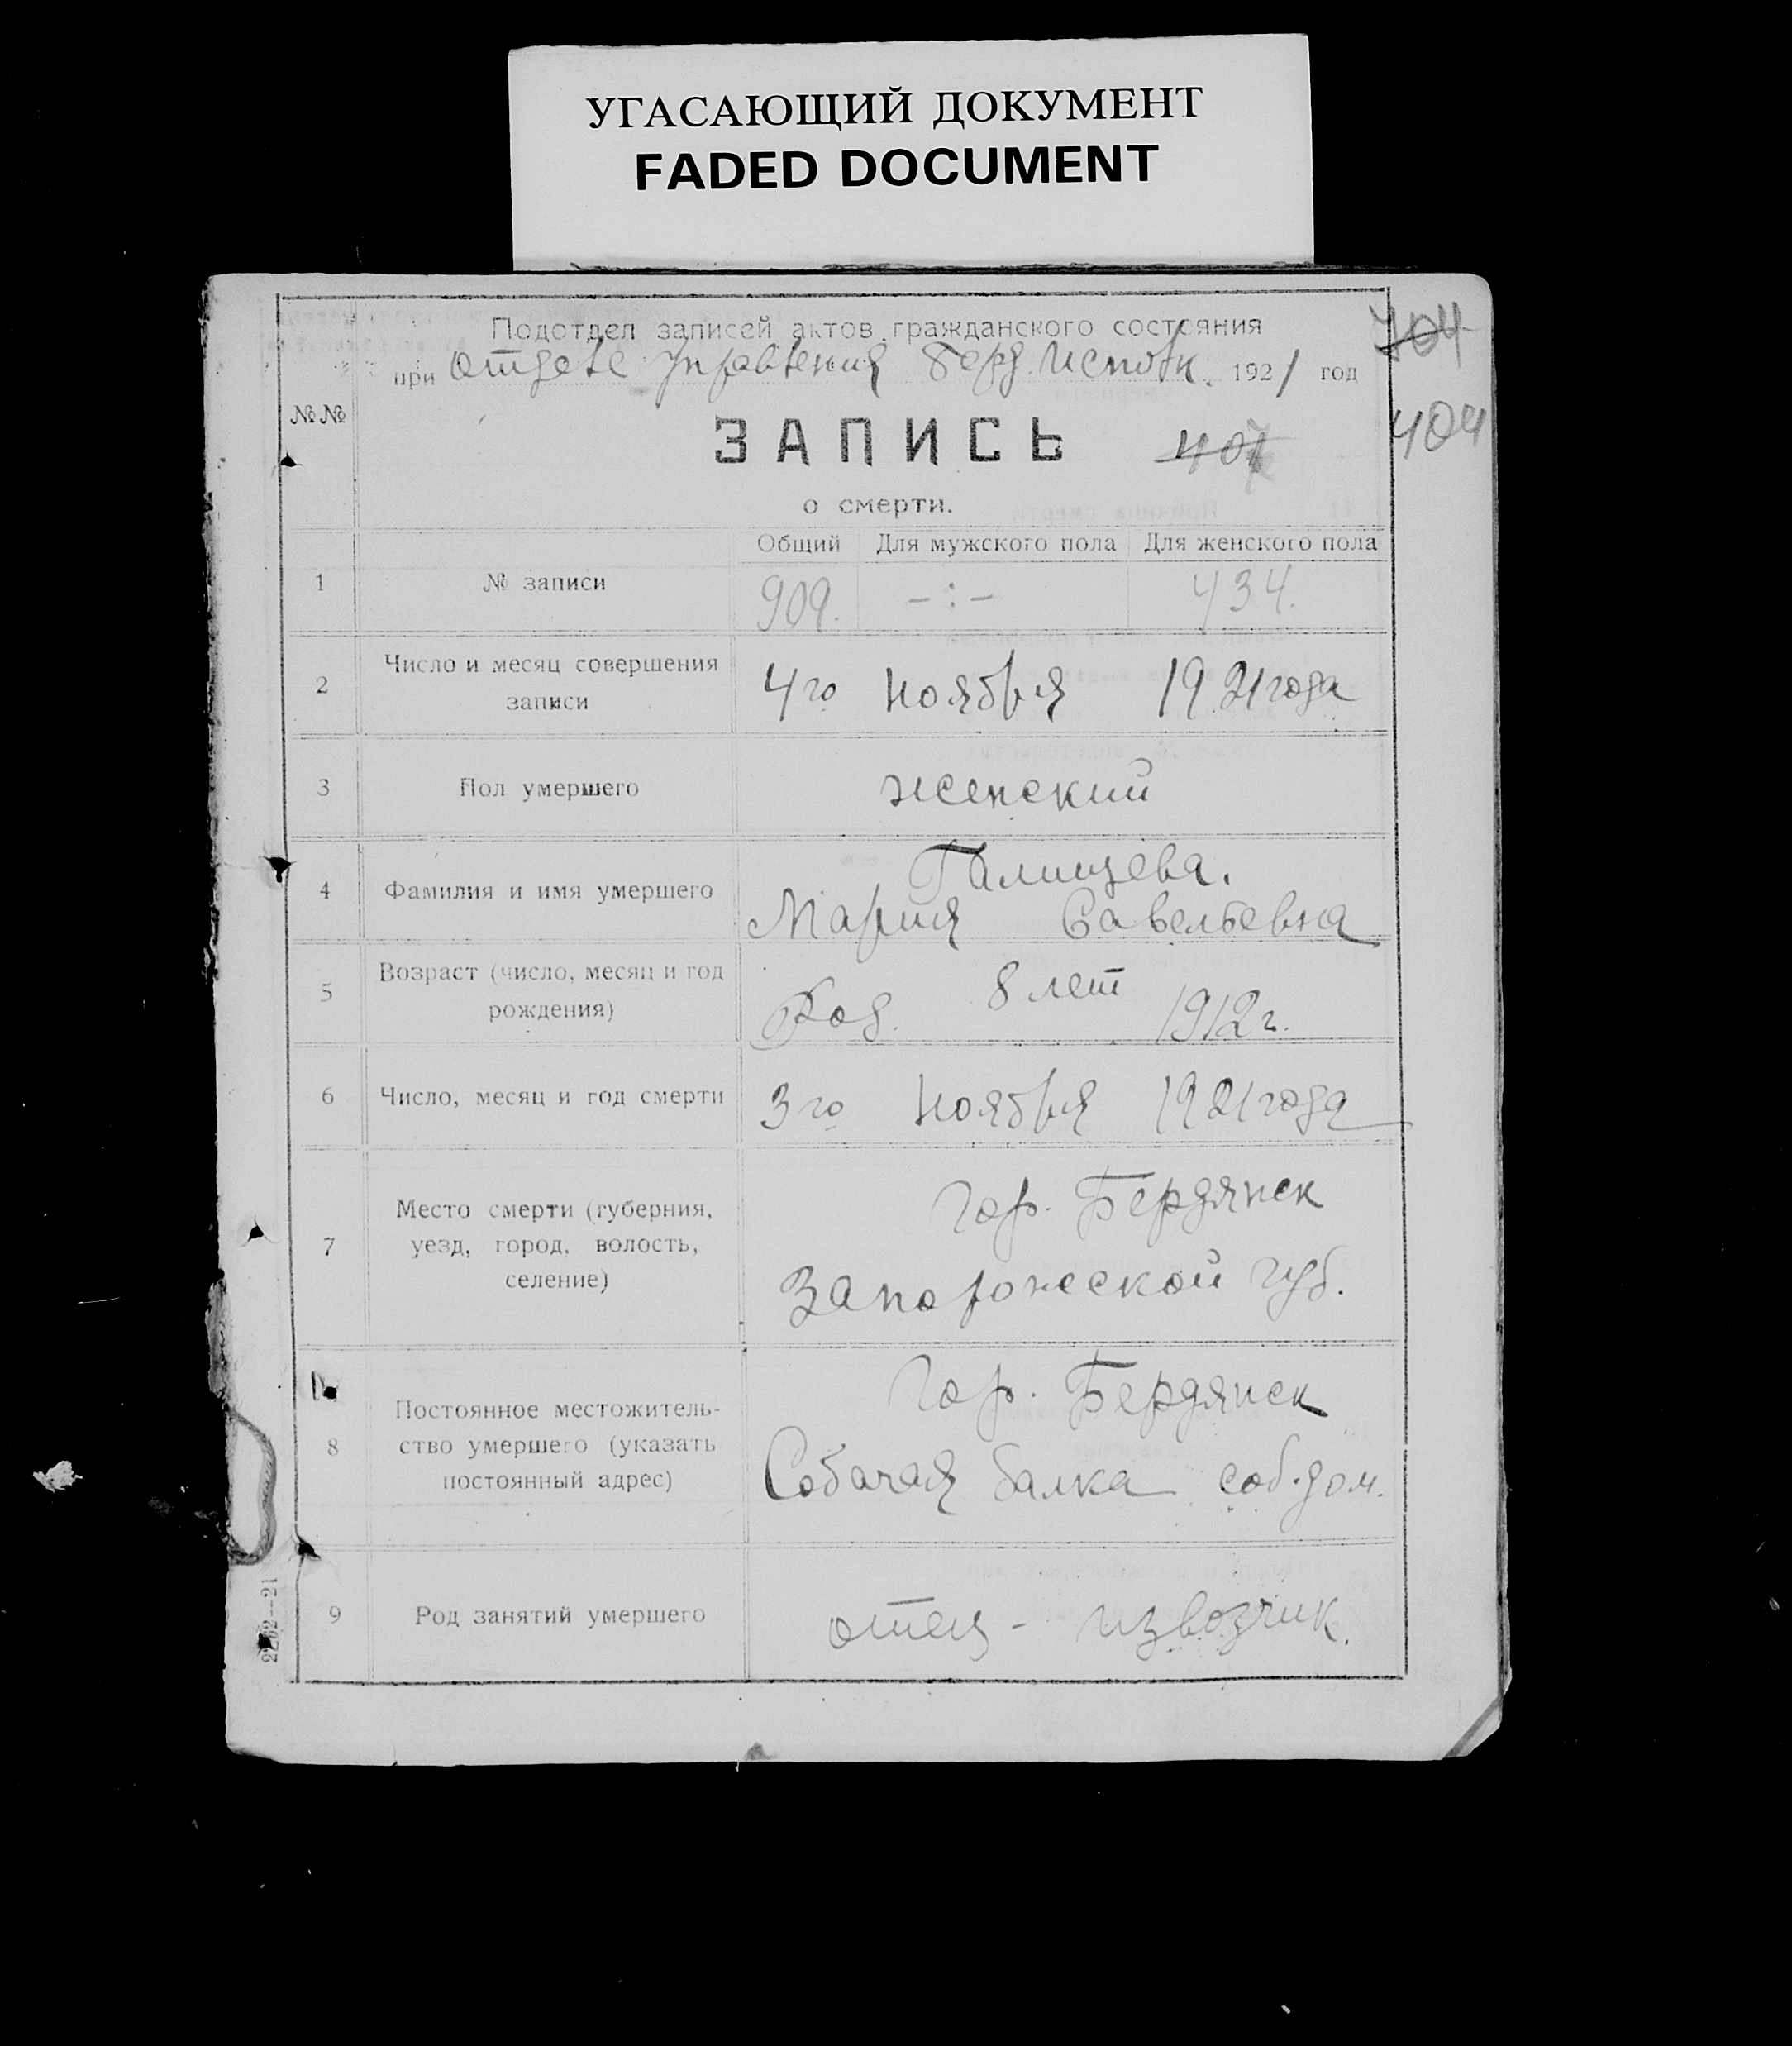 УГАСАЮЩИЙ ДОКУМЕНТ
FADED DOCUMENT
Подотдел записей актов гражданского состояния
704
при отделе Управления Берд. Исполк. 1921 год
№№
404
ЗАПИСЬ 407
о смерти.
Общий Для мужского пола Для женского пола
1 № записи 909. – : – 434.
2 Число и месяц совершения
записи
4го Ноября 1921 года
3 Пол умершего женский
4 Фамилия и имя умершего
Галищева.
Мария Савельевна
5 Возраст (число, месяц и год
рождения)
8 лет
Род. 1912 г.
6 Число, месяц и год смерти 3го Ноября 1921 года
7 Место смерти (губерния,
уезд, город, волость,
селение)
Гор. Бердянск
Запорожской губ.
8 Постоянное местожитель-
ство умершего (указать
постоянный адрес)
Гор. Бердянск
Собачая балка соб. дом.
9 Род занятий умершего отец - извозчик.